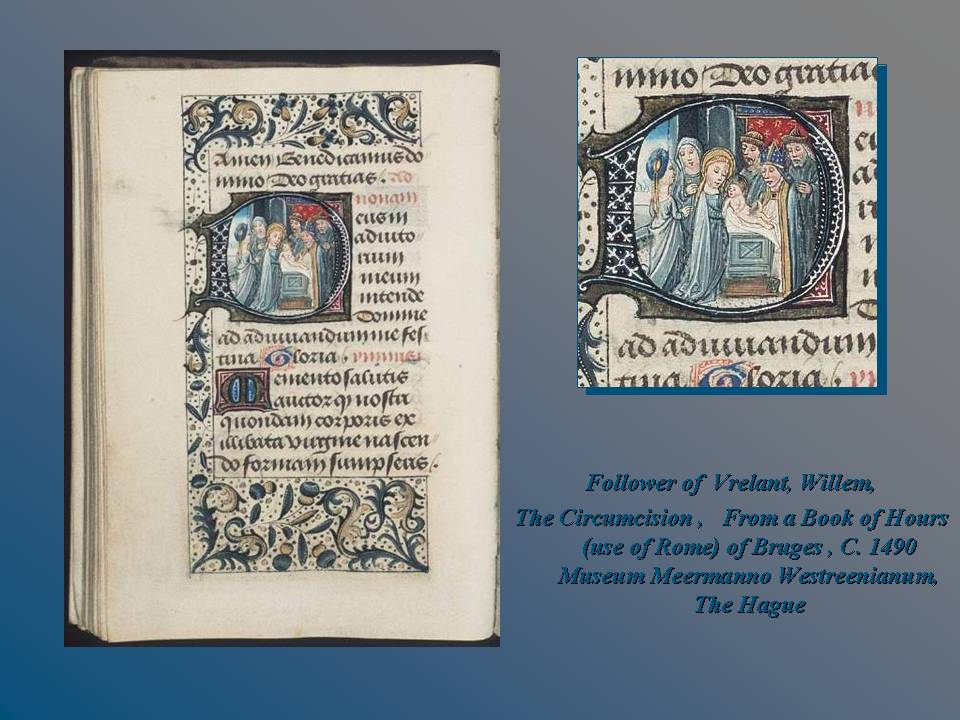 Amen Benedicamus do
mino Deo gratias. ad
nonam
eus in
adiuto
rium
meum
intende
Domine
ad adiuuandum me fes
tina Gloria.
emento salutis
auctor q nostri
quondam corporis ex
illibata virgine nascen
do formam sumpseris.
mino Deo gratias
ad adiuuandum
tina Gloria,
Follower of Vrelant, Willem,
The Circumcision , From a Book of Hours
(use of Rome) of Bruges , C. 1490
Museum Meermanno Westreenianum,
The Hague